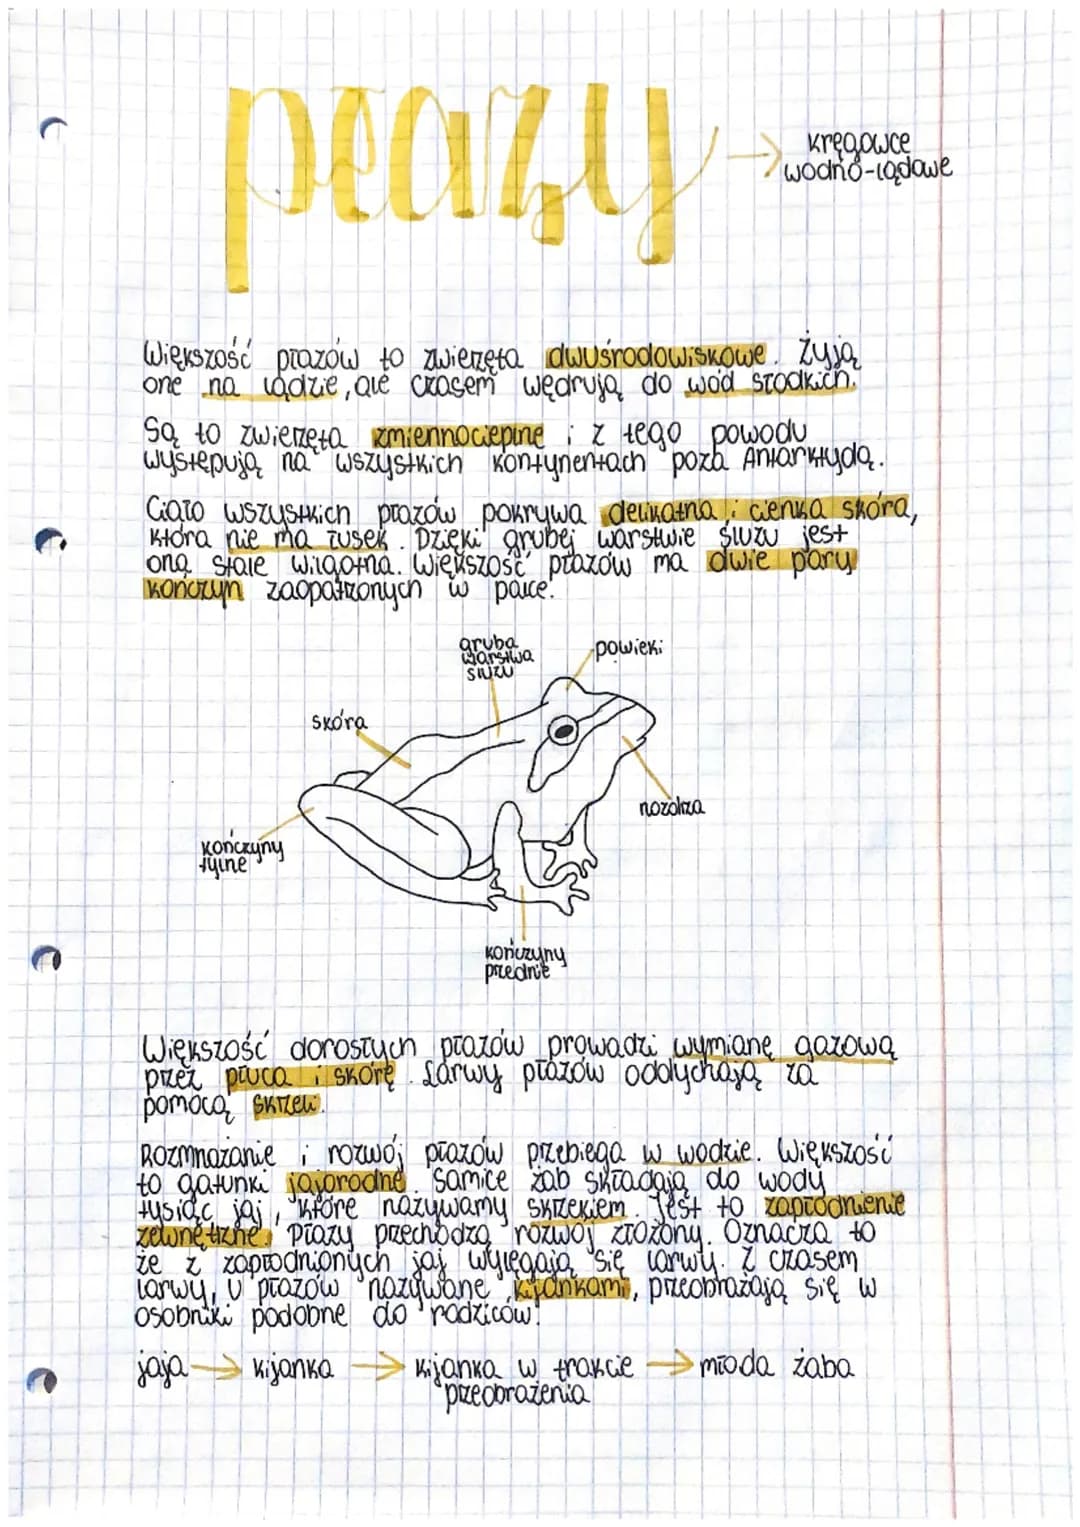 płazy → kręgowce
wodno-lądowe
Większość płazów to zwierzęta dwuśrodowiskowe. Żyją
one na lądzie, ale czasem wędrują do wód słodkich.
Są to zwierzęta zmiennocieplne i z tego powodu
występują na wszystkich kontynentach poza Antarktydą.
Ciało wszystkich płazów pokrywa delikatna i cienka skóra,
która nie ma łusek. Dzięki grubej warstwie śluzu jest
oną stale wilgotna. Większość płazów ma dwie pary
kończyn zaopatrzonych w palce.
gruba
warstwa
śluzu
powieki
skóra
nozdrza
kończyny
tylne
kończyny
przednie
Większość dorosłych płazów prowadzi wymianę gazową
przez płuca i skórę. Larwy płazów oddychają za
pomocą skrzeli.
Rozmnażanie i rozwój płazów przebiega w wodzie. Większość
to gatunki jajorodne. Samice żab składają do wody
tysiąc jaj, które nazywamy skrzekiem. Jest to zapłodnienie
zewnętrzne. Płazy przechodzą rozwój złożony. Oznacza to
że z zapłodnionych jaj wylęgają się larwy. Z czasem
larwy, u płazów nazywane kijankami, przeobrażają się w
osobniki podobne do rodziców.
jaja → kijanka → kijanka w trakcie → młoda żaba
przeobrażenia